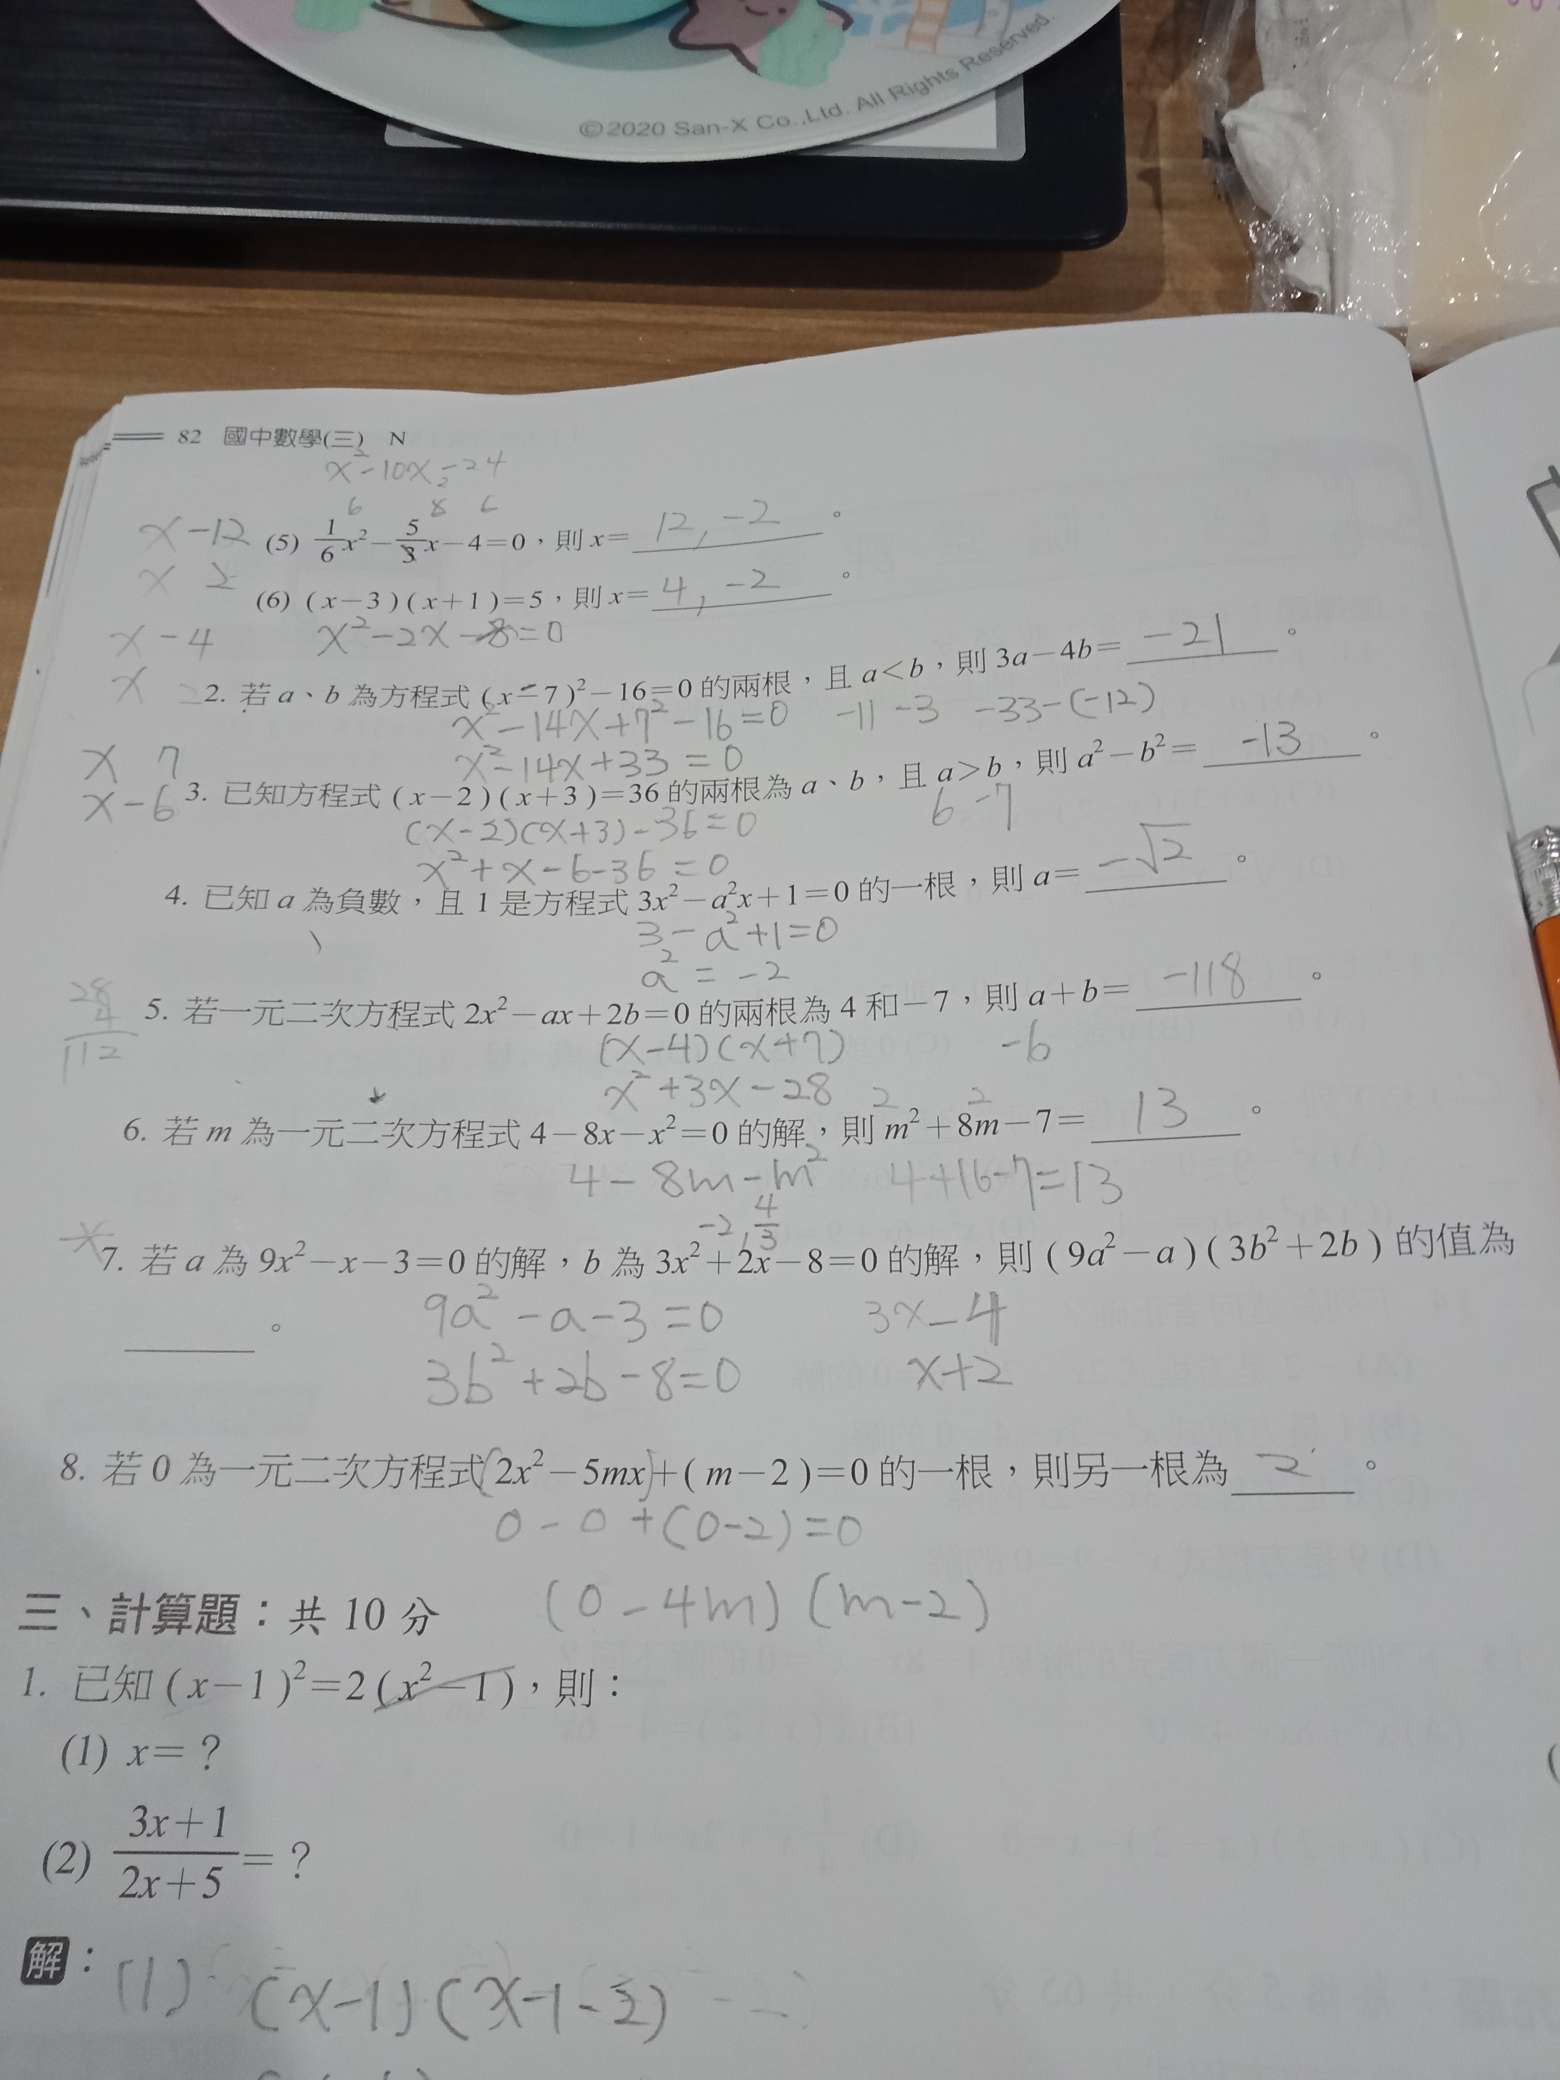 ©2020 San-X Co.,Ltd. All Rights Reserved.
82 國中數學(三) N
x²-10x-24
x-12 (5) 1/6x²-5/3x-4=0，則x= 12, -2 。
x 2
(6) (x-3)(x+1)=5，則x= 4, -2 。
x-4 x²-2x-8=0
x 2
2. 若a、b為方程式(x-7)²-16=0的兩根，且a<b，則3a-4b= -21 。
x²-14x+7²-16=0 -11 -3 -33-(-12)
x²-14x+33=0
x 7
x-6
3. 已知方程式(x-2)(x+3)=36的兩根為a、b，且a>b，則a²-b²= -13 。
(x-2)(x+3)-36=0 6 -7
x²+x-6-36=0
4. 已知a為負數，且1是方程式3x²-a²x+1=0的一根，則a= -√2 。
3-a²+1=0
a²=-2
28
4
112
5. 若一元二次方程式2x²-ax+2b=0的兩根為4和-7，則a+b= -118 。
(x-4)(x+7) -6
x²+3x-28 2 2
6. 若m為一元二次方程式4-8x-x²=0的解，則m²+8m-7= 13 。
4-8m-m² 4+16-7=13
-2, 4/3
7. 若a為9x²-x-3=0的解，b為3x²+2x-8=0的解，則(9a²-a)(3b²+2b)的值為
。
9a²-a-3=0 3x-4
3b²+2b-8=0 x+2
8. 若0為一元二次方程式(2x²-5mx)+(m-2)=0的一根，則另一根為 2 。
0-0+(0-2)=0
(0-4m)(m-2)
三、計算題：共10分
1. 已知(x-1)²=2(x²-1)，則：
(1) x=？
(2) 3x+1/2x+5=？
解：(1) (x-1)(x-1-2)